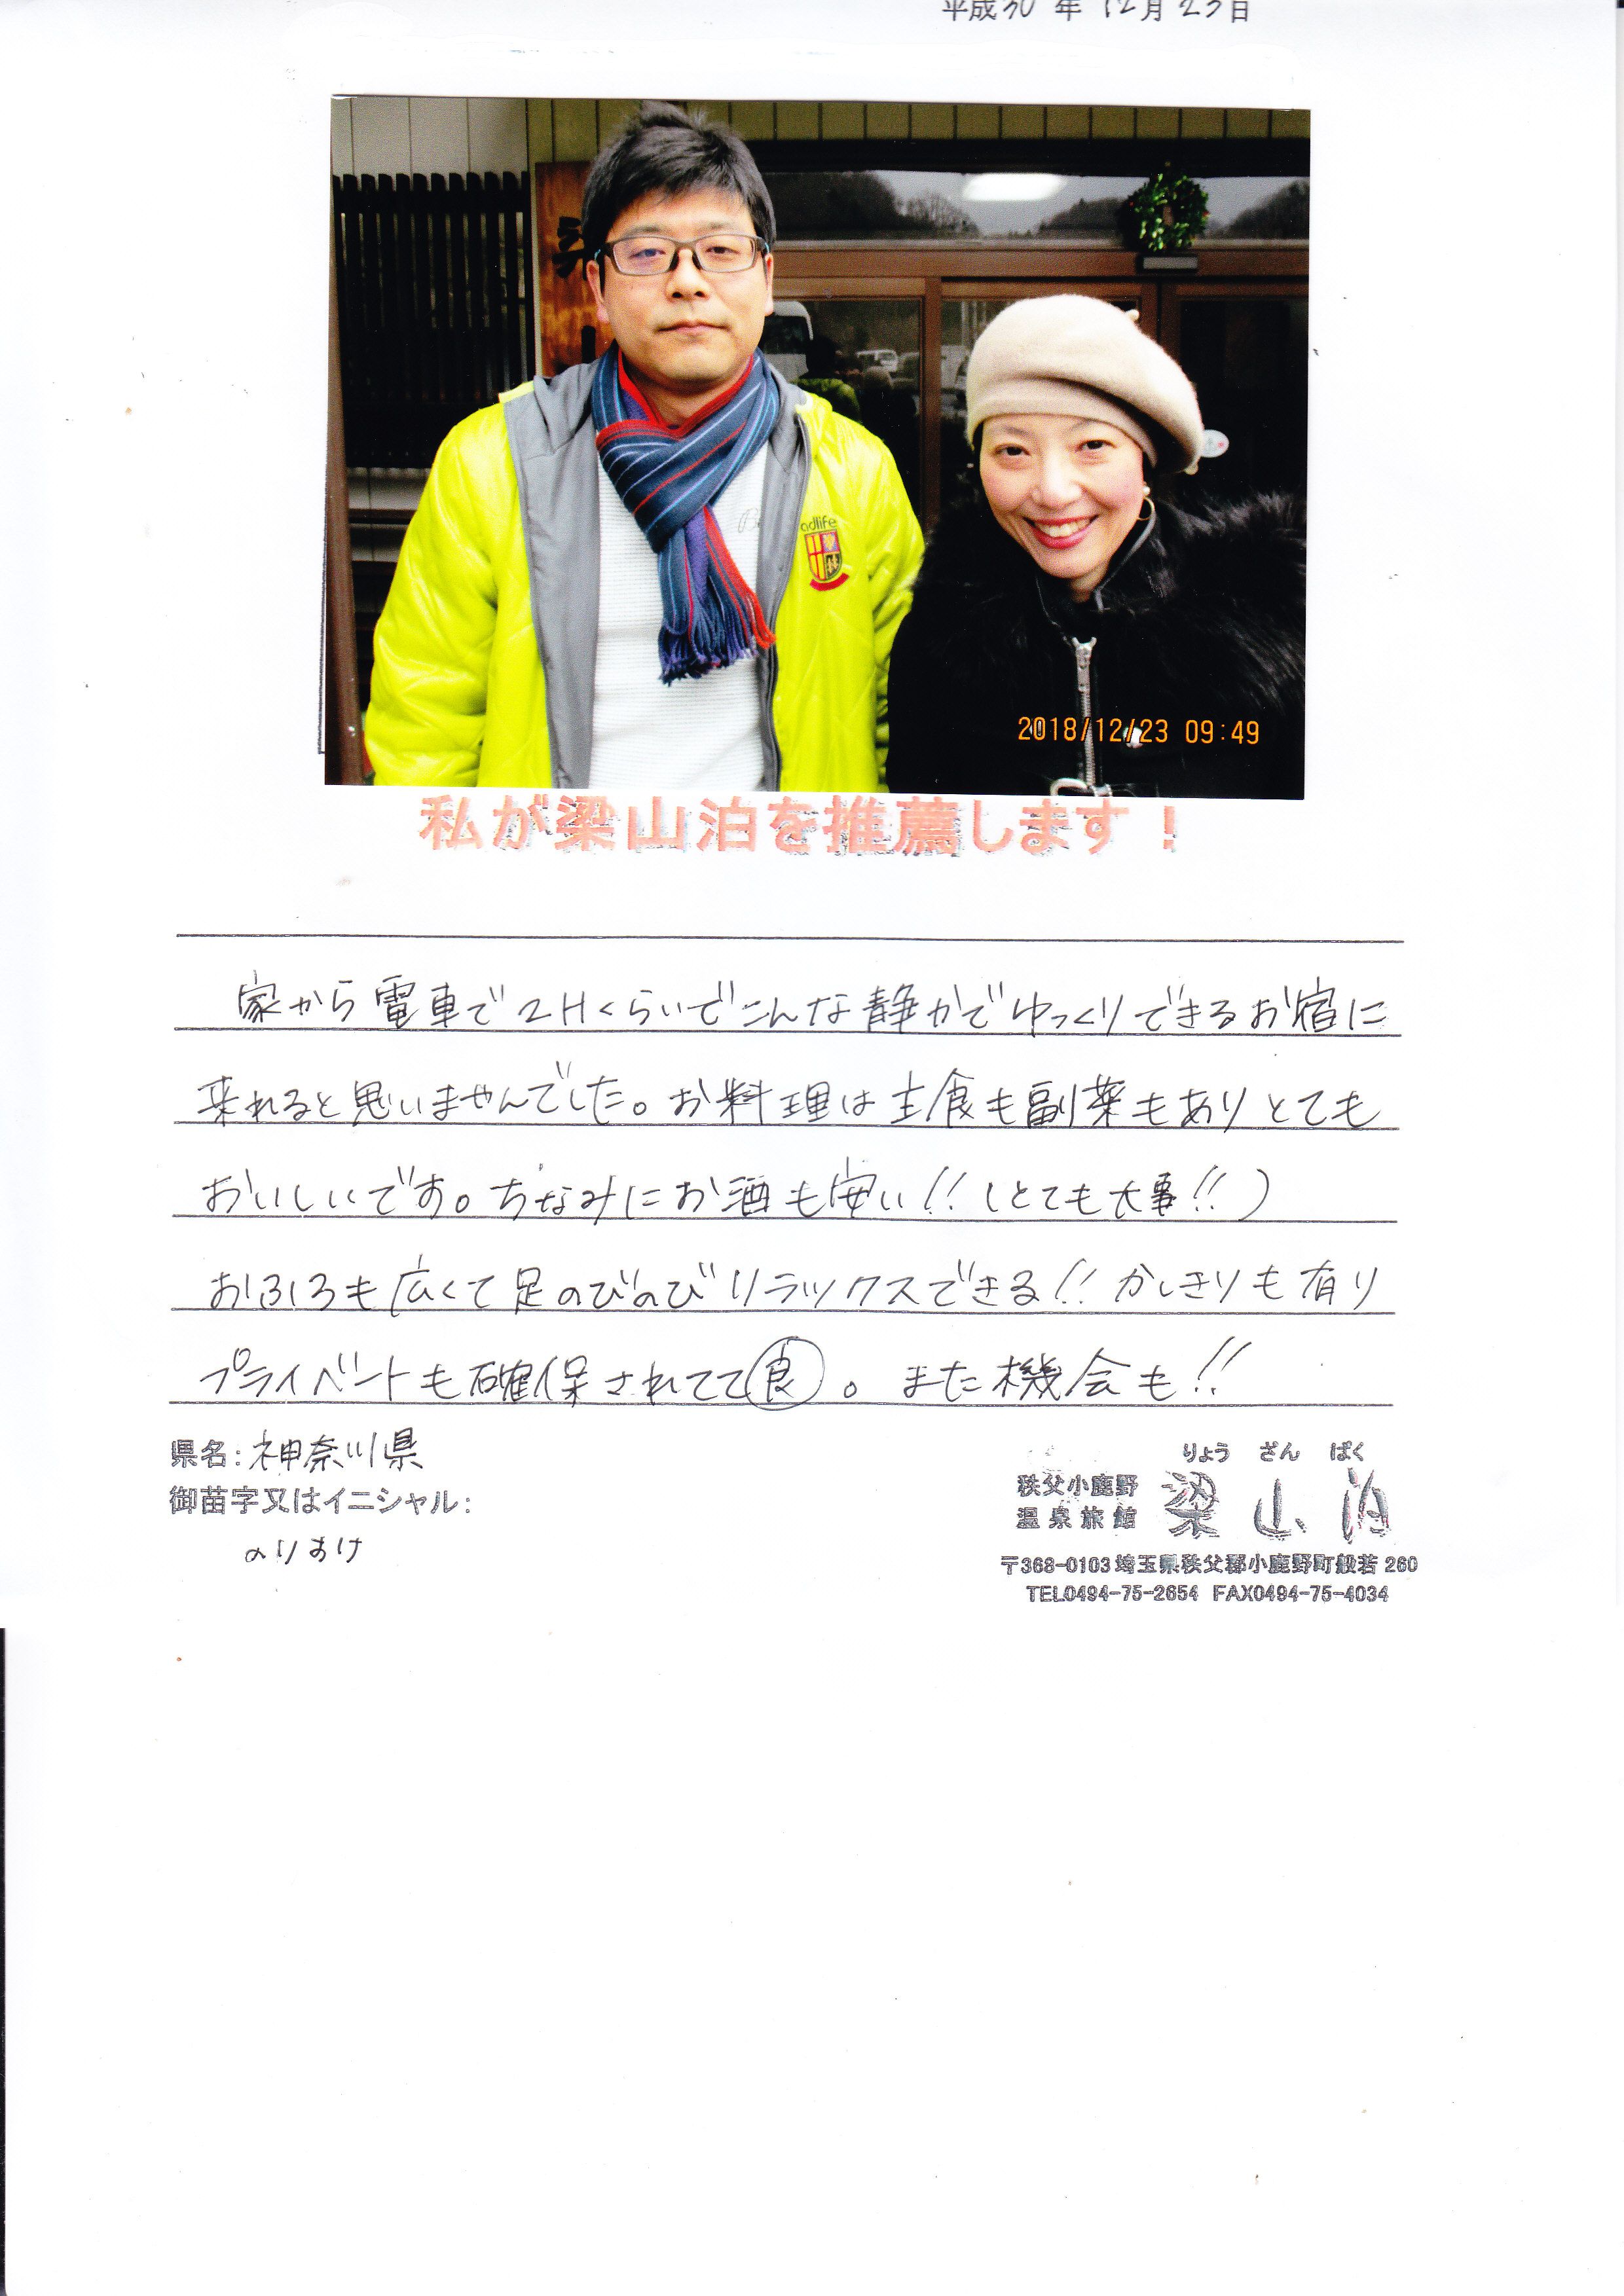 平成30年12月23日
adlife
2018/12/23 09:49
私が梁山泊を推薦します！
家から電車で2Hくらいでこんな静かでゆっくりできるお宿に
来れると思いませんでした。お料理は主食も副菜もありとても
おいしいです。ちなみにお酒も安い!!(とても大事!!)
おふろも広くて足のびのびリラックスできる!!かしきりも有り
プライベントも確保されてて良。また機会も!!
県名：神奈川県
御苗字又はイニシャル：
のりあけ
りょう ざん ぱく
秩父小鹿野
温泉旅館
梁山泊
〒368-0103 埼玉県秩父郡小鹿野町般若260
TEL0494-75-2654 FAX0494-75-4034